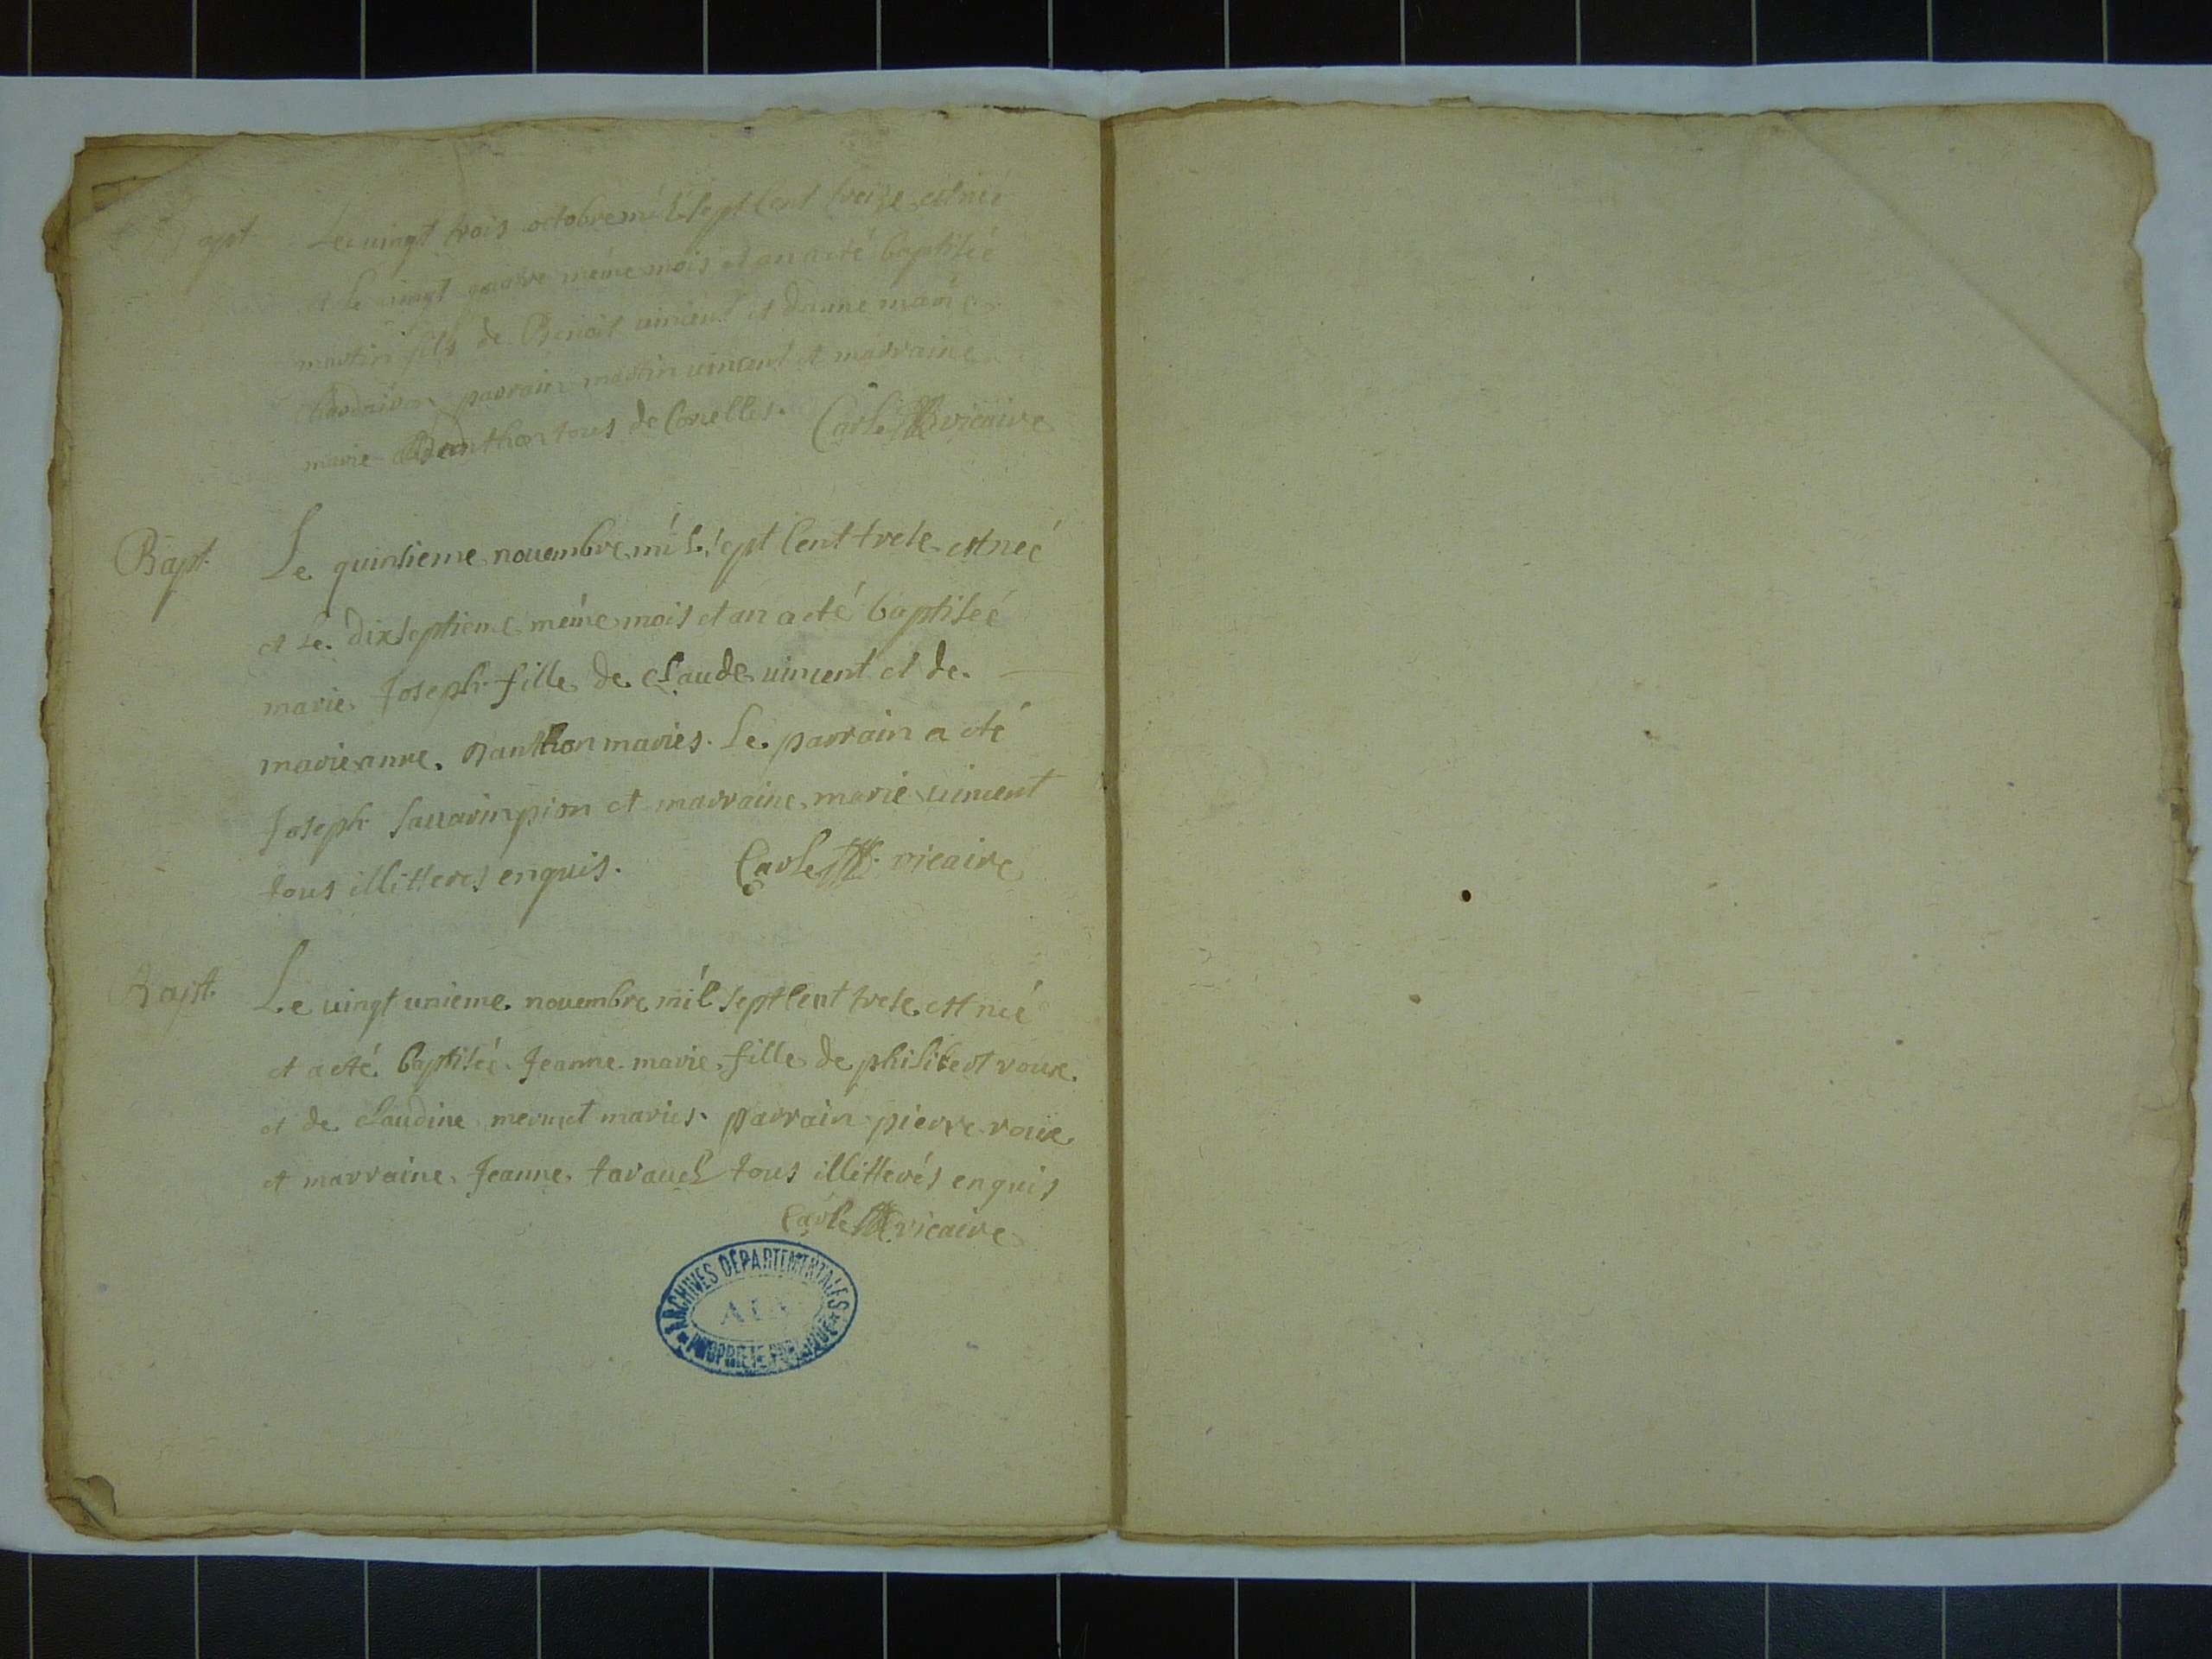 Bapt. Le vingt trois octobre mil sept cent treize est neé
et le vingt quatre méme mois et an a eté baptiseé
martin fils de Benoit vincent et danne marie
parrain martin vincent et marraine
marie Danthon tous de Corcelles. Carle vicaire
Bapt. Le quinsieme novembre mil sept cent trese est neé
et le dixseptieme méme mois et an a eté baptiseé
marie Joseph fille de Claude vincent et de
marie anne Danthon maries. Le parrain a eté
Joseph savarinpion et marraine marie vincent
tous illitteres enquis. Carle vicaire
Bapt. Le vingt unieme novembre mil sept cent trese est neé
et a eté baptiseé Jeanne marie fille de philibert roux
et de Claudine mermet maries. parrain pierre roux
et marraine Jeanne taravel tous illitterés enquis
Carle vicaire
ARCHIVES DÉPARTEMENTALES
AIN
PROPRIÉTÉ PUBLIQUE